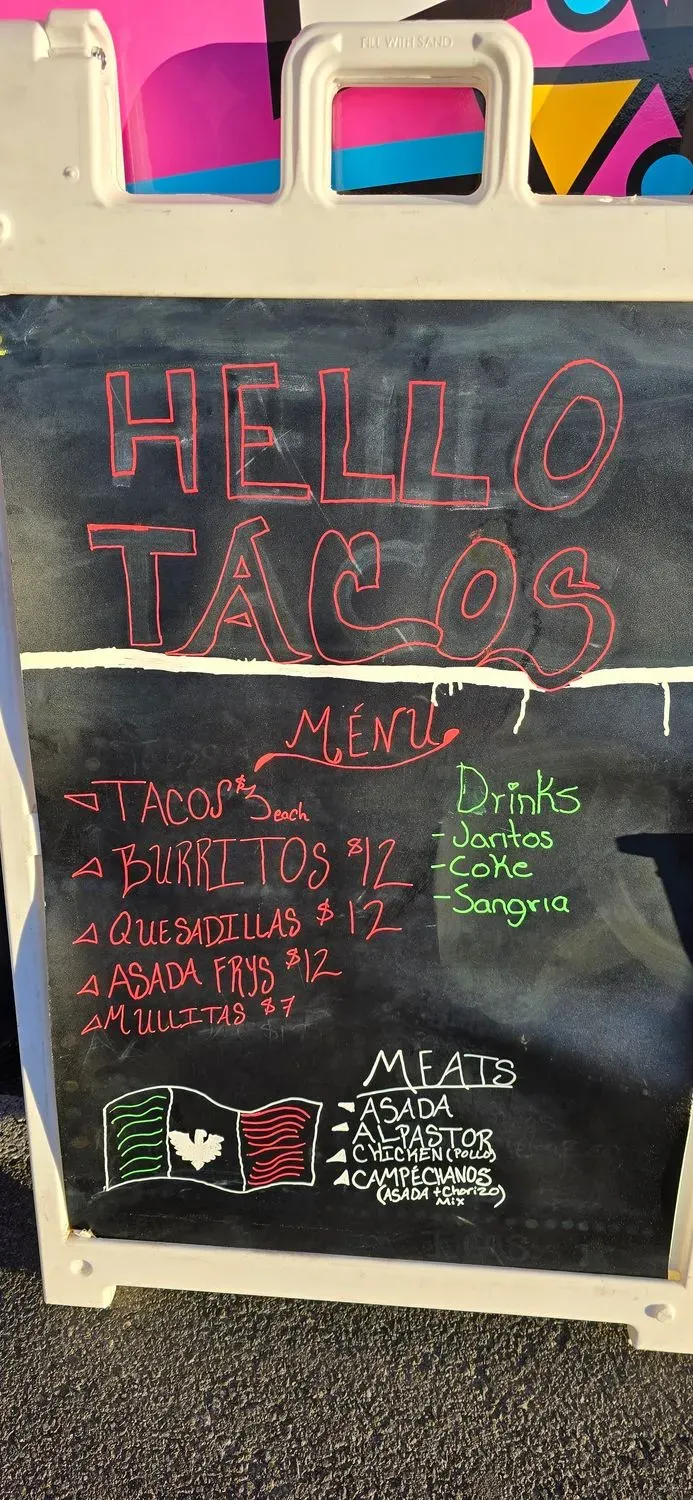 FILL WITH SAND
HELLO
TACOS
MÉNU
TACOS $3 each
BURRITOS $12
QUESADILLAS $12
ASADA FRYS $12
MULLITAS $7
Drinks
- Jaritos
- Coke
- Sangria
MEATS
ASADA
ALPASTOR
CHICKEN (POLLO)
CAMPÉCHANOS
(ASADA + Chorizo)
Mix